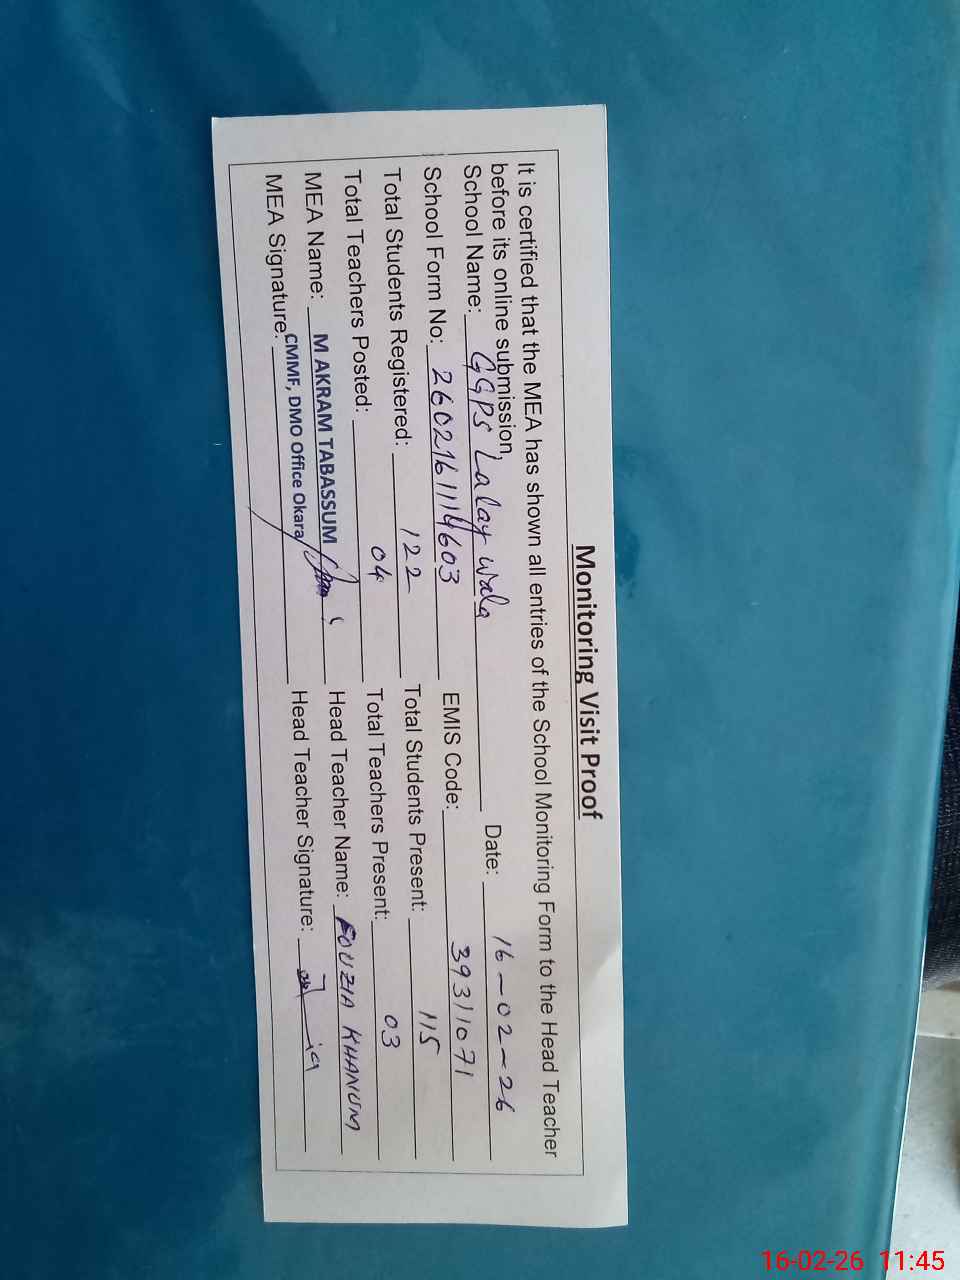 Monitoring Visit Proof
It is certified that the MEA has shown all entries of the School Monitoring Form to the Head Teacher
before its online submission.
School Name: GGPS Lalay Wala Date: 16-02-26
School Form No: 2602161114603 EMIS Code: 39311071
Total Students Registered: 122 Total Students Present: 115
Total Teachers Posted: 04 Total Teachers Present: 03
MEA Name: M AKRAM TABASSUM Head Teacher Name: FOUZIA KHANUM
MEA Signature: CMMF, DMO Office Okara Head Teacher Signature:
16-02-26 11:45